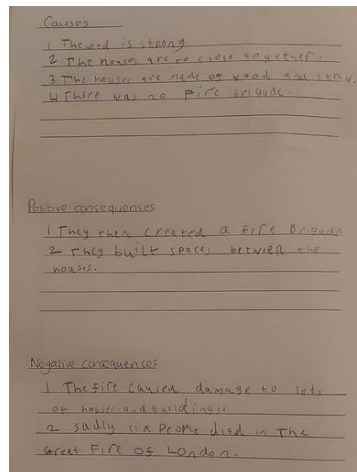 Causes
1 The wind is strong
2 The houses are to close together.
3 The houses are made of wood and straw.
4 There was no fire brigade.
Positive consequences
1 They then created a fire Brigade
2 They built spaces between the
houses.
Negative consequences
1 The fire caused damage to lots
of houses and buildings.
2 sadly six people died in The
Great Fire of London.